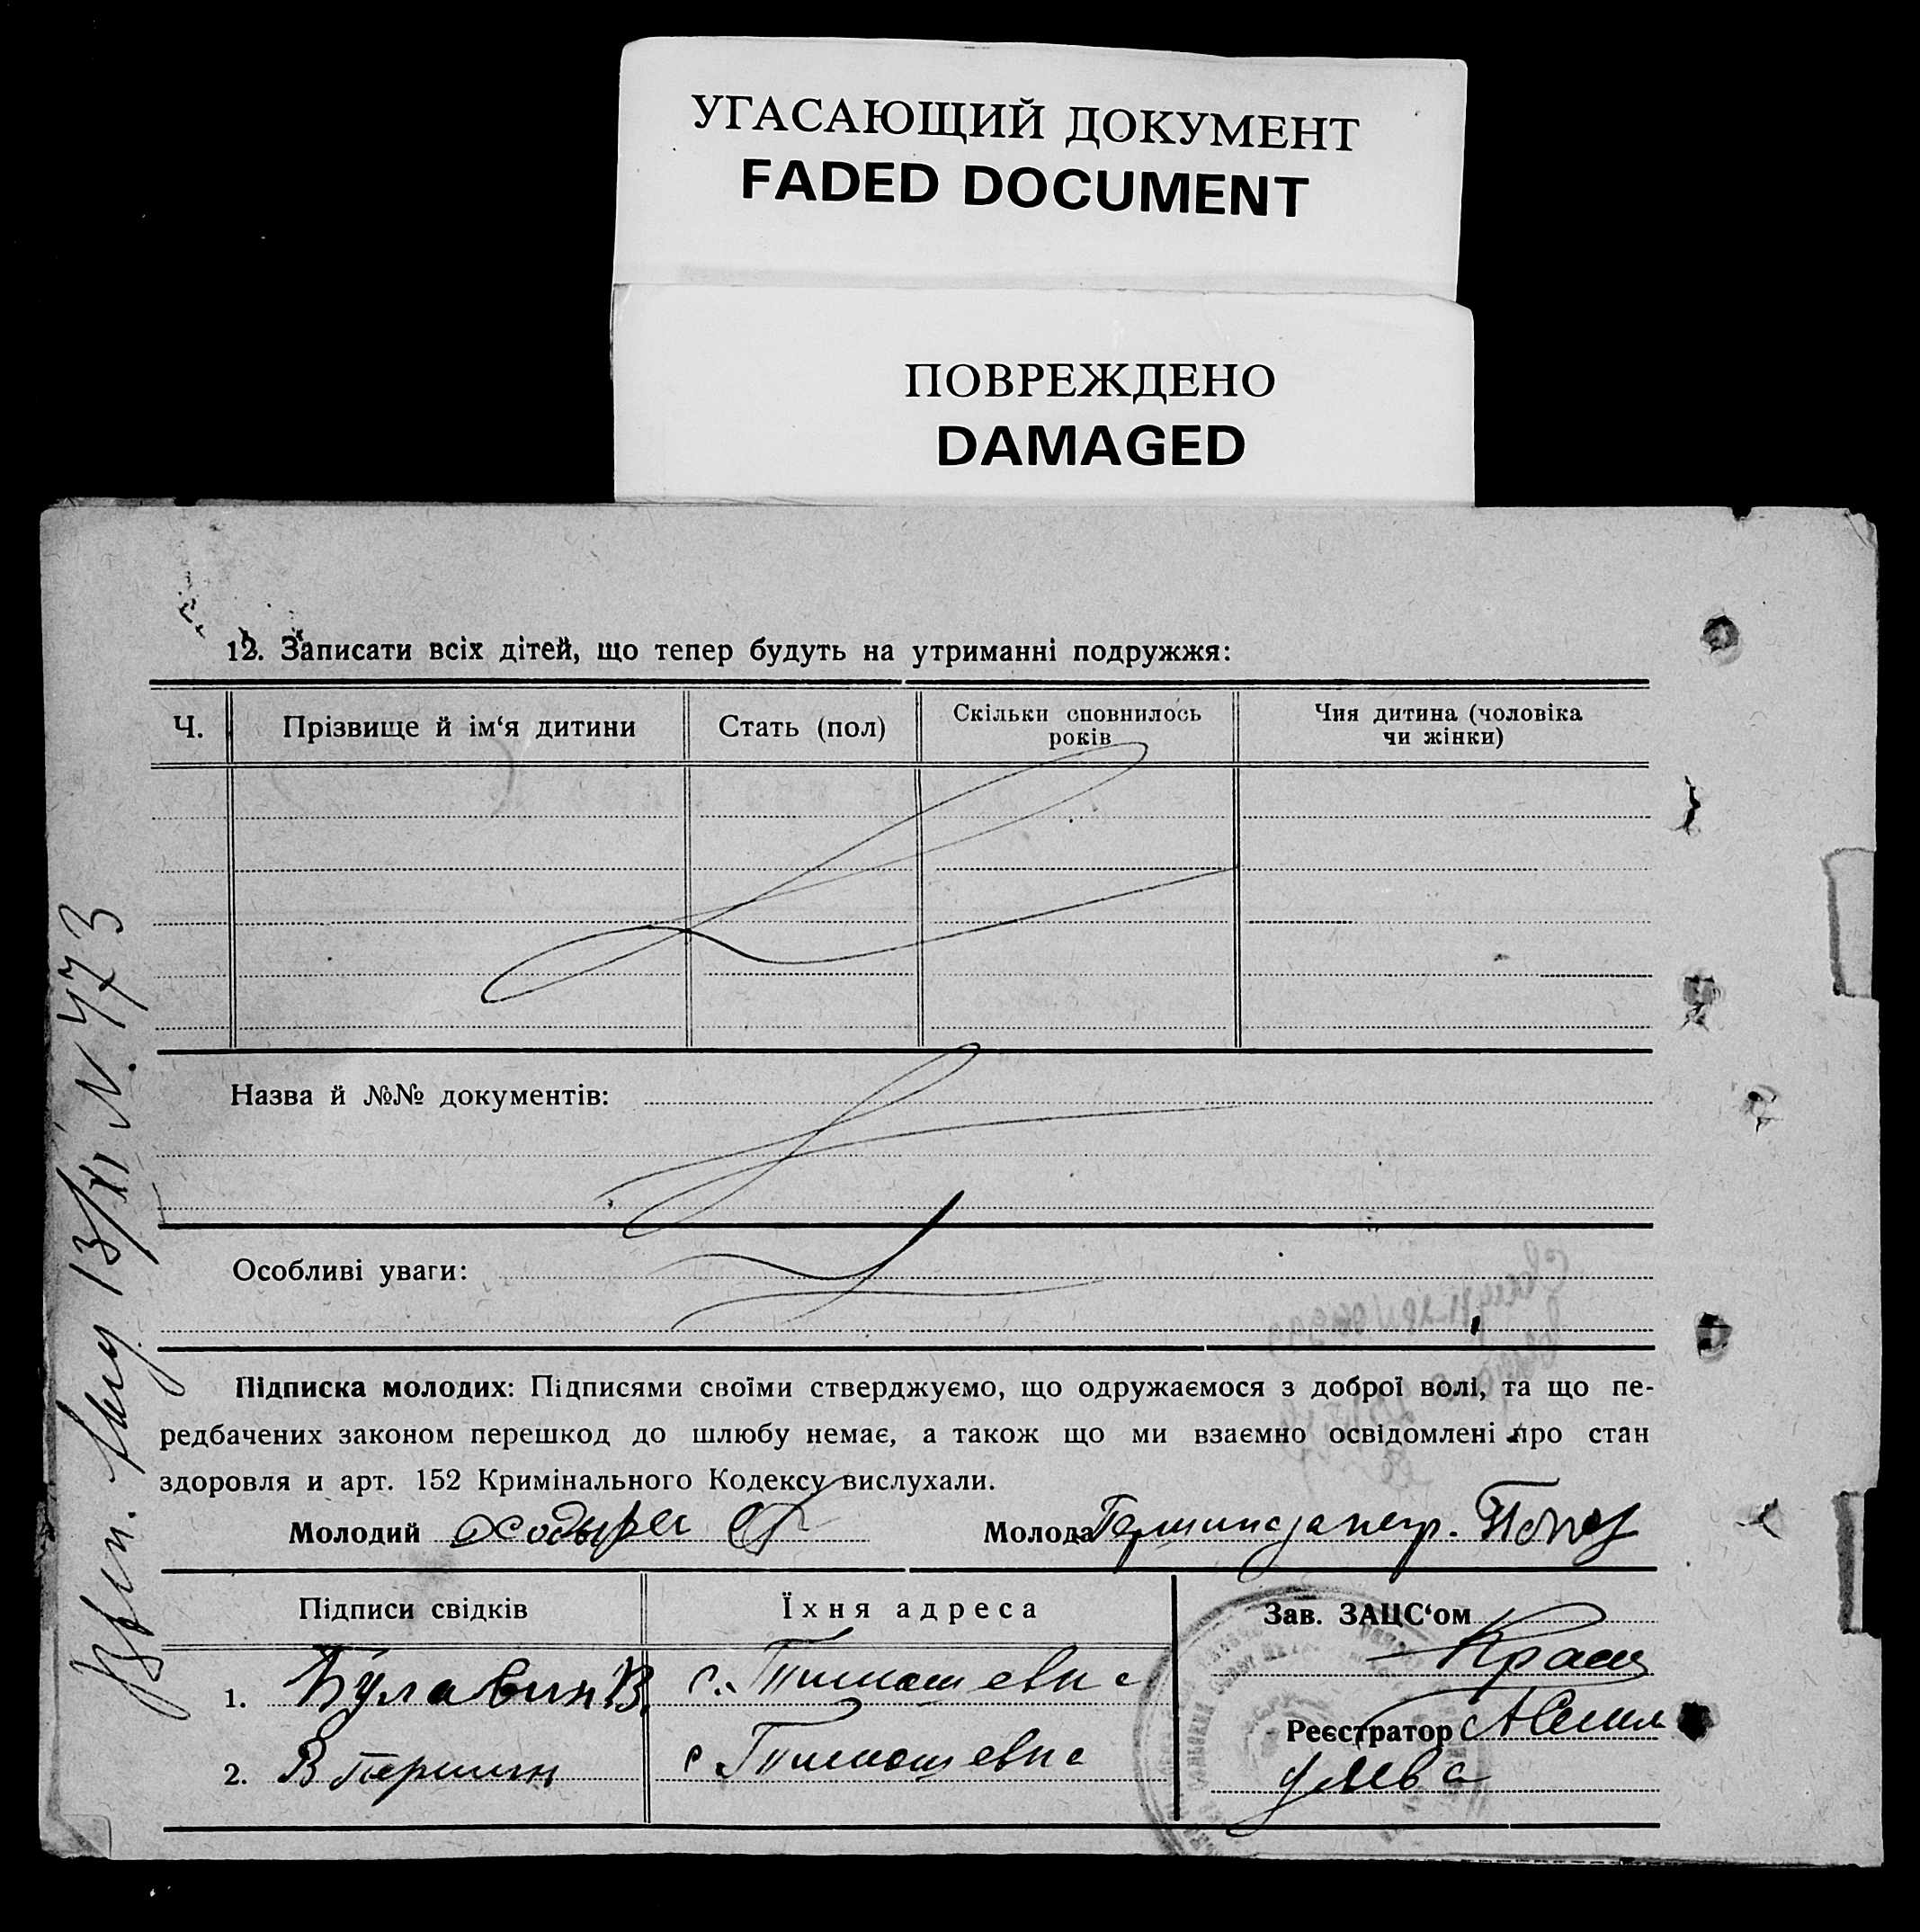 УГАСАЮЩИЙ ДОКУМЕНТ
FADED DOCUMENT
ПОВРЕЖДЕНО
DAMAGED
12. Записати всіх дітей, що тепер будуть на утриманні подружжя:
Ч.
Прізвище й ім‘я дитини
Стать (пол)
Скільки сповнилось
років
Чия дитина (чоловіка
чи жінки)
Назва й №№ документів:
Особливі уваги:
Підписка молодих: Підписями своїми стверджуємо, що одружаємося з доброї волі, та що пе-
редбачених законом перешкод до шлюбу немає, а також що ми взаємно освідомлені про стан
здоровля и арт. 152 Кримінального Кодексу вислухали.
Молодий Ходырев
Молода
Підписи свідків
Їхня адреса
Зав. ЗАЦС‘ом
1. Булавин В. с. Тимашевка
Реєстратор
2. В Першин с Тимашевка
13/XI N. 473